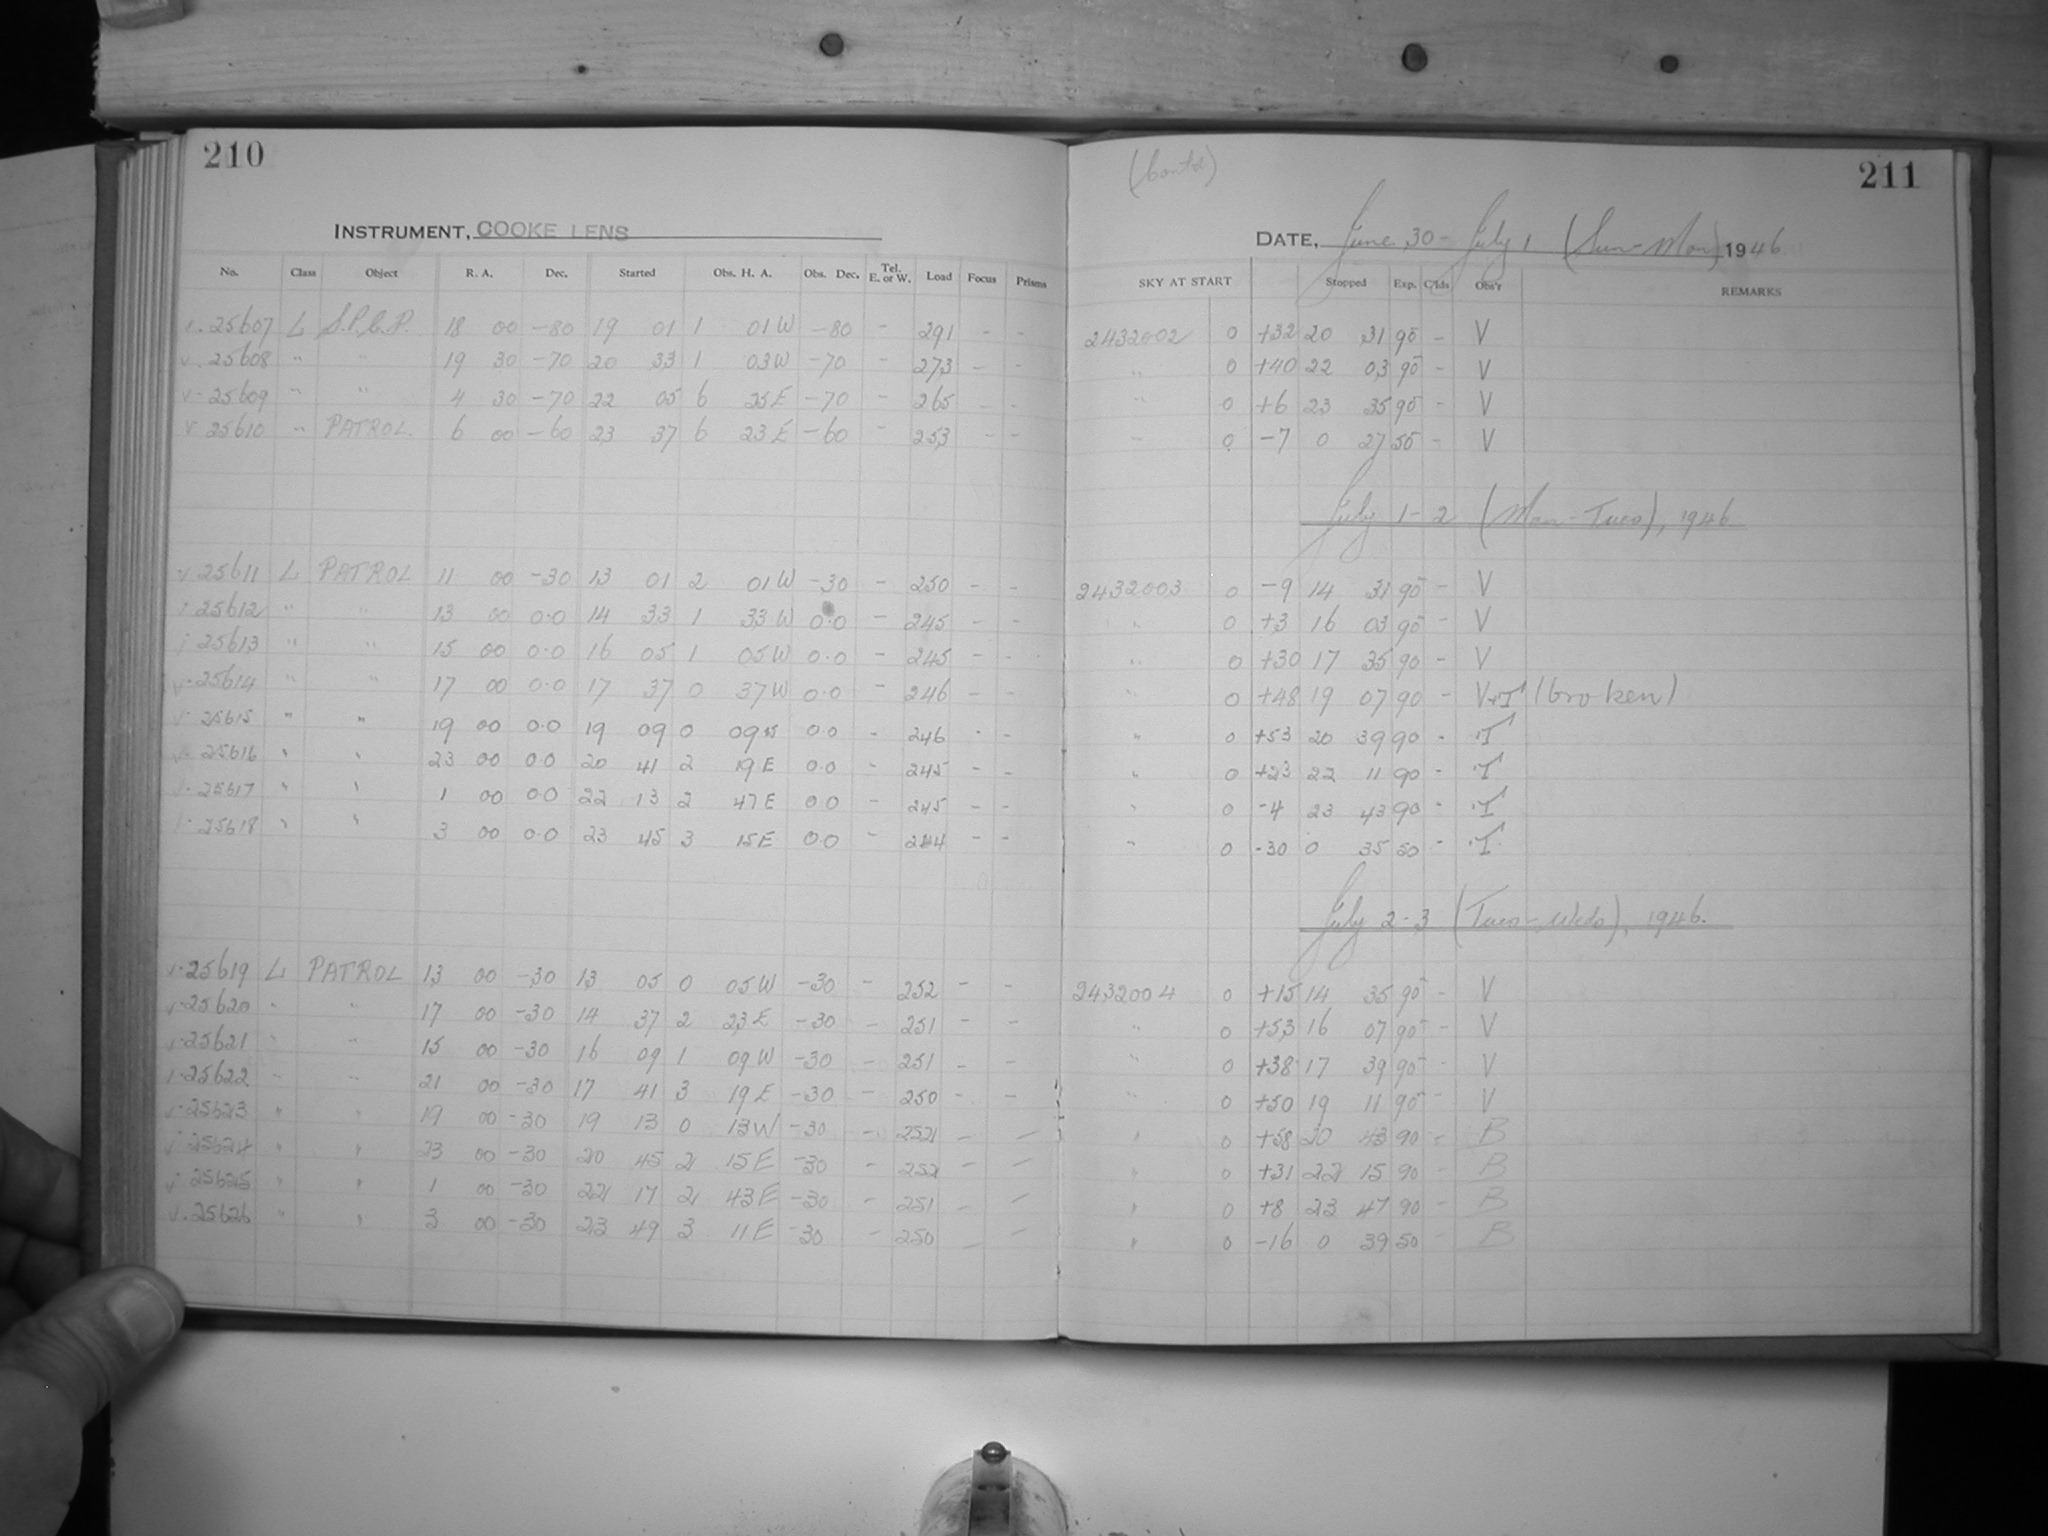 210
(Contd)
211
INSTRUMENT, COOKE LENS
DATE, June 30 - July 1 (Sun-Mon) 1946
No. Class Object R. A. Dec. Started Obs. H. A. Obs. Dec. Tel. E. or W. Load Focus Prisms SKY AT START Stopped Exp. C'lds Obs'r REMARKS
25607 L S.P.C.P. 18 00 -80 19 01 1 01W -80 - 291 - - 2432002 0 +32 20 31 90 - V
25608 " " 19 30 -70 20 33 1 03W -70 - 273 - - " 0 +40 22 03 90 - V
25609 " " 4 30 -70 22 05 6 25E -70 - 265 - - " 0 +6 23 35 90 - V
25610 " PATROL 6 00 -60 23 37 6 23E -60 - 253 - - " 0 -7 0 27 50 - V
July 1-2 (Mon-Tues), 1946
25611 L PATROL 11 00 -30 13 01 2 01W -30 - 250 - - 2432003 0 -9 14 31 90 - V
25612 " " 13 00 0.0 14 33 1 33W 0.0 - 245 - - " 0 +3 16 03 90 - V
25613 " " 15 00 0.0 16 05 1 05W 0.0 - 245 - - " 0 +30 17 35 90 - V
25614 " " 17 00 0.0 17 37 0 37W 0.0 - 246 - - " 0 +48 19 07 90 - V+T (broken)
25615 " " 19 00 0.0 19 09 0 09W 0.0 - 246 - - " 0 +53 20 39 90 - T
25616 " " 23 00 0.0 20 41 2 19E 0.0 - 245 - - " 0 +23 22 11 90 - T
25617 " " 1 00 0.0 22 13 2 47E 0.0 - 245 - - " 0 -4 23 43 90 - T
25618 " " 3 00 0.0 23 45 3 15E 0.0 - 244 - - " 0 -30 0 35 50 - T
July 2-3 (Tues-Weds), 1946.
25619 L PATROL 13 00 -30 13 05 0 05W -30 - 252 - - 2432004 0 +15 14 35 90 - V
25620 " " 17 00 -30 14 37 2 23E -30 - 251 - - " 0 +53 16 07 90 - V
25621 " " 15 00 -30 16 09 1 09W -30 - 251 - - " 0 +38 17 39 90 - V
25622 " " 21 00 -30 17 41 3 19E -30 - 250 - - " 0 +50 19 11 90 - V
25623 " " 19 00 -30 19 13 0 13W -30 - 252 - - " 0 +58 20 43 90 - B
25624 " " 23 00 -30 20 45 2 15E -30 - 252 - - " 0 +31 22 15 90 - B
25625 " " 1 00 -30 22 17 2 43E -30 - 251 - - " 0 +8 23 47 90 - B
25626 " " 3 00 -30 23 49 3 11E -30 - 250 - - " 0 -16 0 39 50 - B